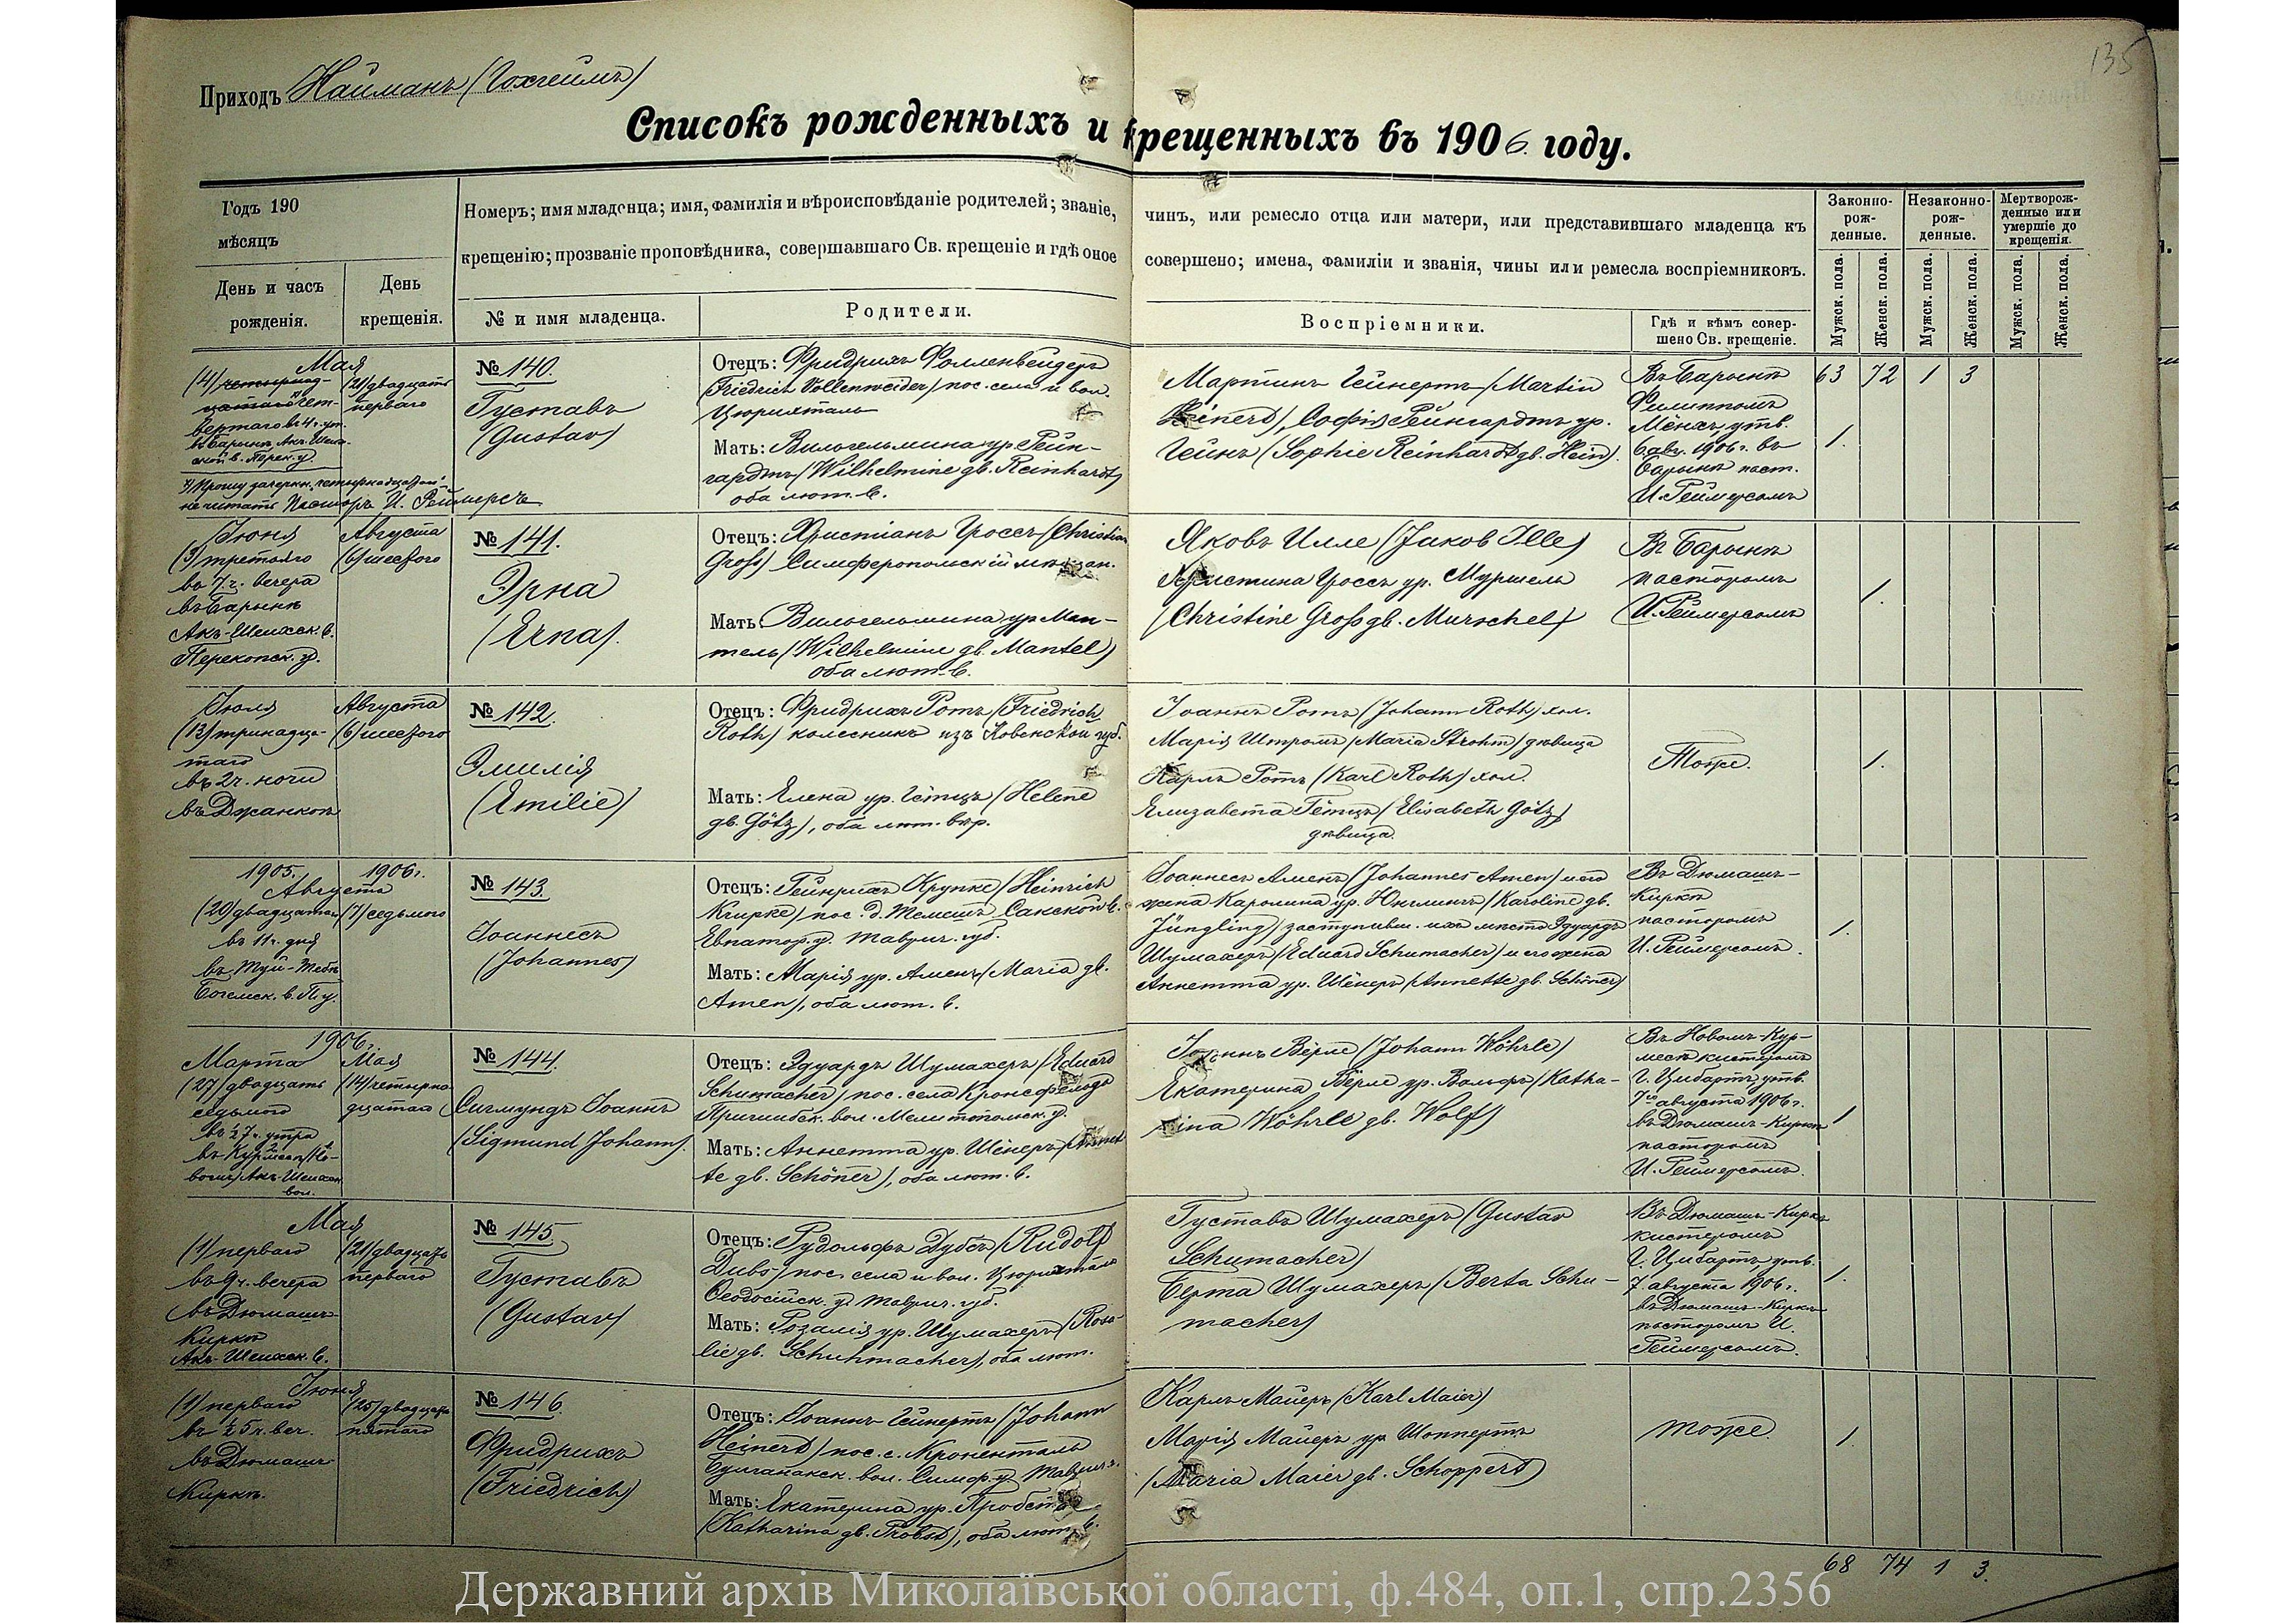 135
Приходъ Найманъ (Гохгеймъ)
Списокъ рожденныхъ и крещенныхъ въ 1906 году.
Годъ 190
мѣсяцъ
День и часъ
рожденія.
День
крещенія.
Номеръ; имя младенца; имя, фамилія и вѣроисповѣданіе родителей; званіе,
крещенію; прозваніе проповѣдника, совершавшаго Св. крещеніе и гдѣ оное
№ и имя младенца.
Родители.
чинъ, или ремесло отца или матери, или представившаго младенца къ
совершено; имена, фамиліи и званія, чины или ремесла воспріемниковъ.
Воспріемники.
Гдѣ и кѣмъ совер-
шено Св. крещеніе.
Законно-
рож-
денные.
Незаконно-
рож-
денные.
Мертворож-
денные или
умершіе до
крещенія.
Мужск. пола.
Женск. пола.
Мужск. пола.
Женск. пола.
Мужск. пола.
Женск. пола.
Мая
(4) четырнад-
цатаго чет-
вертаго въ 4 ч. ут.
въ Барынъ, Акъ-Шеих-
ской в. Перек. у.
(21) двадцать
перваго
х) Прошу зачеркн. "четырнадцатаго"
не читать Пасторъ И. Реймерсъ
№ 140.
Густавъ
(Gustav)
Отецъ: Фридрихъ Фолленвейдеръ
(Friedrich Vollenweider) пос. села и вол.
Цюрихталь
Мать: Вильгельмина ур. Рейн-
гардтъ (Wilhelmine gb. Reinhardt)
оба лют. в.
Мартинъ Гейнертъ (Martin
Heinerd), Софія Рейнгардтъ ур.
Гейнъ (Sophie Reinhardt gb. Hein).
Въ Барынѣ
Филиппомъ
Мёнхъ, утв.
6 авг. 1906 г. въ
Барынѣ паст.
И. Реймерсомъ
63 72 1 3
1.
Іюня
(3) третьяго
въ 7 ч. вечера
въ Барынѣ
Акъ-Шеихск. в.
Перекопск. у.
Августа
(6) шестого
№ 141.
Эрна
(Erna).
Отецъ: Христіанъ Гроссъ (Christian
Groß) Симферопольскій мѣщан.
Мать: Вильгельмина ур. Ман-
тель (Wilhelmine gb. Mantel)
оба лют. в.
Яковъ Илле (Jakob Ille)
Христина Гроссъ ур. Муршель
(Christine Groß gb. Murschel)
Въ Барынѣ
пасторомъ
И. Реймерсомъ
1.
Іюля
(13) тринадца-
таго
въ 2 ч. ночи
въ Джанкоѣ
Августа
(6) шестого
№ 142.
Эмилія
(Emilie)
Отецъ: Фридрихъ Ротъ (Friedrich
Roth) колесникъ изъ Ковенской губ.
Мать: Елена ур. Гётцъ (Helene
gb. Götz), оба лют. вѣр.
Іоаннъ Ротъ (Johann Roth) хол.
Марія Штромъ (Maria Strohm) дѣвица
Карлъ Ротъ (Karl Roth) хол.
Елизавета Гётцъ (Elisabeth Götz)
дѣвица.
Тоже.
1.
1905. 1906 г.
Августа
(20) двадцатаго
въ 11 ч. дня
въ Туй-Тебѣ
Богемск. в. П. у.
(7) седьмого
№ 143.
Іоаннесъ
(Johannes)
Отецъ: Гейнрихъ Крупке (Heinrich
Krupke) пос. д. Темешъ Сакской в.
Евпатор. у. Таврич. губ.
Мать: Марія ур. Аменъ (Maria gb.
Amen), оба лют. в.
Іоаннесъ Аменъ (Johannes Amen) и его
жена Каролина ур. Юнглингъ (Karoline gb.
Jüngling) заступивш. ихъ мѣсто Эдуардъ
Шумахеръ (Eduard Schumacher) и его жена
Аннетта ур. Шёнеръ (Annette gb. Schöner)
Въ Дюмашъ-
Киркѣ
пасторомъ
И. Реймерсомъ.
1.
1906.
Марта
(27) двадцать
седьмого
въ ½ 7 ч. утра
въ Курмесѣ (Но-
вомъ) Акъ-Шеихск.
вол.
Мая
(14) четырна-
дцатаго
№ 144.
Сигмундъ Іоаннъ
(Sigmund Johann).
Отецъ: Эдуардъ Шумахеръ (Eduard
Schumacher) пос. села Кронсфельдъ
Пришибск. вол. Мелитопольск. у.
Мать: Аннетта ур. Шёнеръ (Annet-
te gb. Schöner), оба лют. в.
Іоаннъ Вёрле (Johann Wöhrle)
Екатерина Вёрле ур. Вольфъ (Katha-
rina Wöhrle gb. Wolf)
Въ Новомъ-Кур-
месѣ кистеромъ
Г. Цибартъ, утв.
7го августа 1906 г.
въ Дюмашъ-Киркѣ
пасторомъ
И. Реймерсомъ.
1
Мая
(1) перваго
въ 9 ч. вечера
въ Дюмашъ-
Киркѣ
Акъ-Шеихск. в.
(21) двадцать
перваго
№ 145.
Густавъ
(Gustav)
Отецъ: Рудольфъ Дубсъ (Rudolf
Dubs) пос. села и вол. Цюрихталь
Ѳеодосійск. у. Таврич. губ.
Мать: Розалія ур. Шумахеръ (Rosa-
lie gb. Schuhmacher), оба лют.
Густавъ Шумахеръ (Gustav
Schumacher)
Берта Шумахеръ (Berta Schu-
macher)
Въ Дюмашъ-Киркѣ
кистеромъ
Г. Цибартъ, утв.
7 августа 1906 г.
въ Дюмашъ-Киркѣ
пасторомъ И.
Реймерсомъ.
1.
Іюня
(1) перваго
въ ½ 5 ч. веч.
въ Дюмашъ-
Киркѣ.
(25) двадцать
пятаго
№ 146
Фридрихъ
(Friedrich)
Отецъ: Іоаннъ Гейнертъ (Johann
Heinerd) пос. с. Кроненталь
Булганакск. вол. Симф. у. Таврич. г.
Мать: Екатерина ур. Пробстъ
(Katharina gb. Probst), оба лют. в.
Карлъ Майеръ (Karl Maier)
Марія Майеръ ур. Шоппертъ
(Maria Maier gb. Schopperd)
тоже.
1.
68 74 1 3.
Державний архів Миколаївської області, ф.484, оп.1, спр.2356